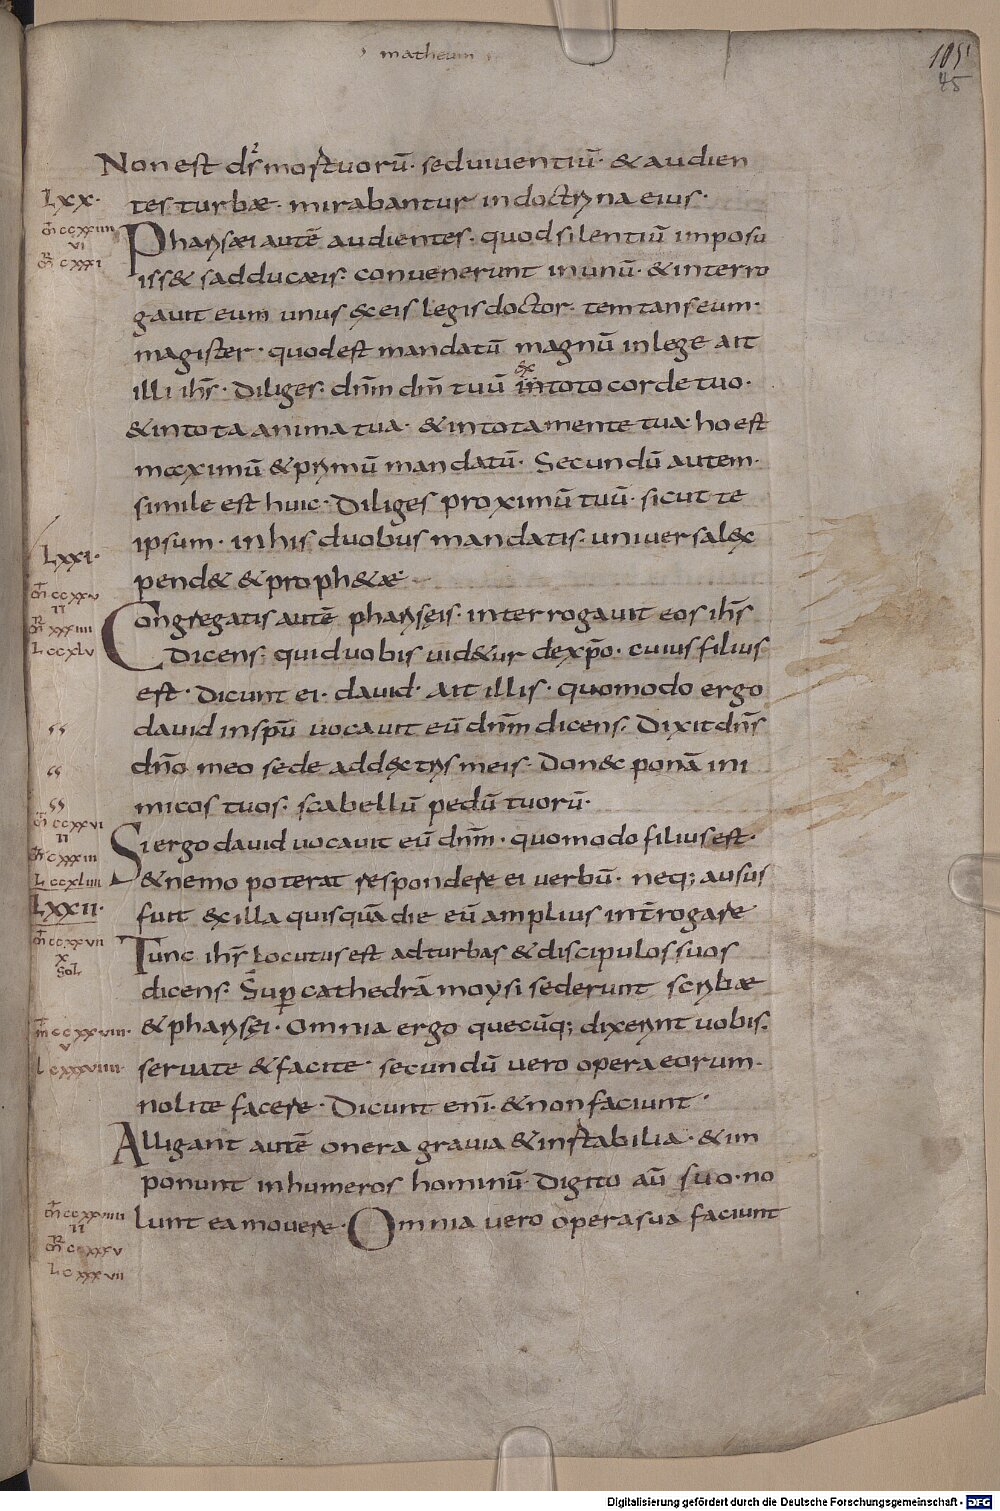 matheum
105
45
Non est d̄s mortuorū· sed uiuentiū· & audien
LXX·
tes turbæ· mirabantur in doctryna eius·
m̄ ccxxiiii
vi
m̄r cxxxi
Pharysæi autē audientes· quod silentiū imposu
iss& sadducæis· conuenerunt in unū· & interro
gauit eum unus ex eis legis doctor· temtans eum·
magister· quod est mandatū magnū in lege ait
illi ih̄s· Diliges· dn̄m dm̄ tuū in toto corde tuo·
ex
& in tota anima tua· & in tota mente tua· ho est
maximū & prymū mandatū· Secundū autem·
simile est huic· Diliges proximū tuū· sicut te
ipsum· in his duobus mandatis· uniuersa lex
LXXI·
pend& & proph&æ·
m̄ ccxxv
ii
m̄r xxxiiii
L ccxlv
Congregatis autē pharyseis· interrogauit eos ih̄s
Dicens· quid uobis uid&ur de xp̄o· cuius filius
est· Dicunt ei· dauid· Ait illis· quomodo ergo
dauid in spū uocauit eū dn̄m dicens· Dixit dn̄s
dn̄o meo sede addextrys meis· Donec ponā ini
micos tuos· scabellū pedū tuorū·
m̄ ccxxvi
ii
m̄r cxxxiii
L ccxliiii
Si ergo dauid uocauit eū dn̄m· quomodo filius est·
& nemo poterat respondere ei uerbū· neq; ausus
LXXII·
fuit ex illa quisquā die eū amplius int̄rogare
m̄ ccxxvii
x
Sol
Tunc ih̄s Locutus est ad turbas & discipulos suos
dicens· Sup cathedrā moysi sederunt scrybæ
m̄ ccxxviii·
v
L cxxxviiii·
& pharysei· Omnia ergo quecūq; dixerynt uobis·
seruate & facite· secundū uero opera eorum·
nolite facere· Dicunt enī· & non faciunt·
Alligant autē onera grauia & instabilia· & im
ponunt in humeros hominū· Digito aū suo· no
m̄ ccxxviiii
ii
m̄r cxxxv
L cxxxvii
lunt ea mouere· Omnia uero opera sua faciunt
Digitalisierung gefördert durch die Deutsche Forschungsgemeinschaft - DFG